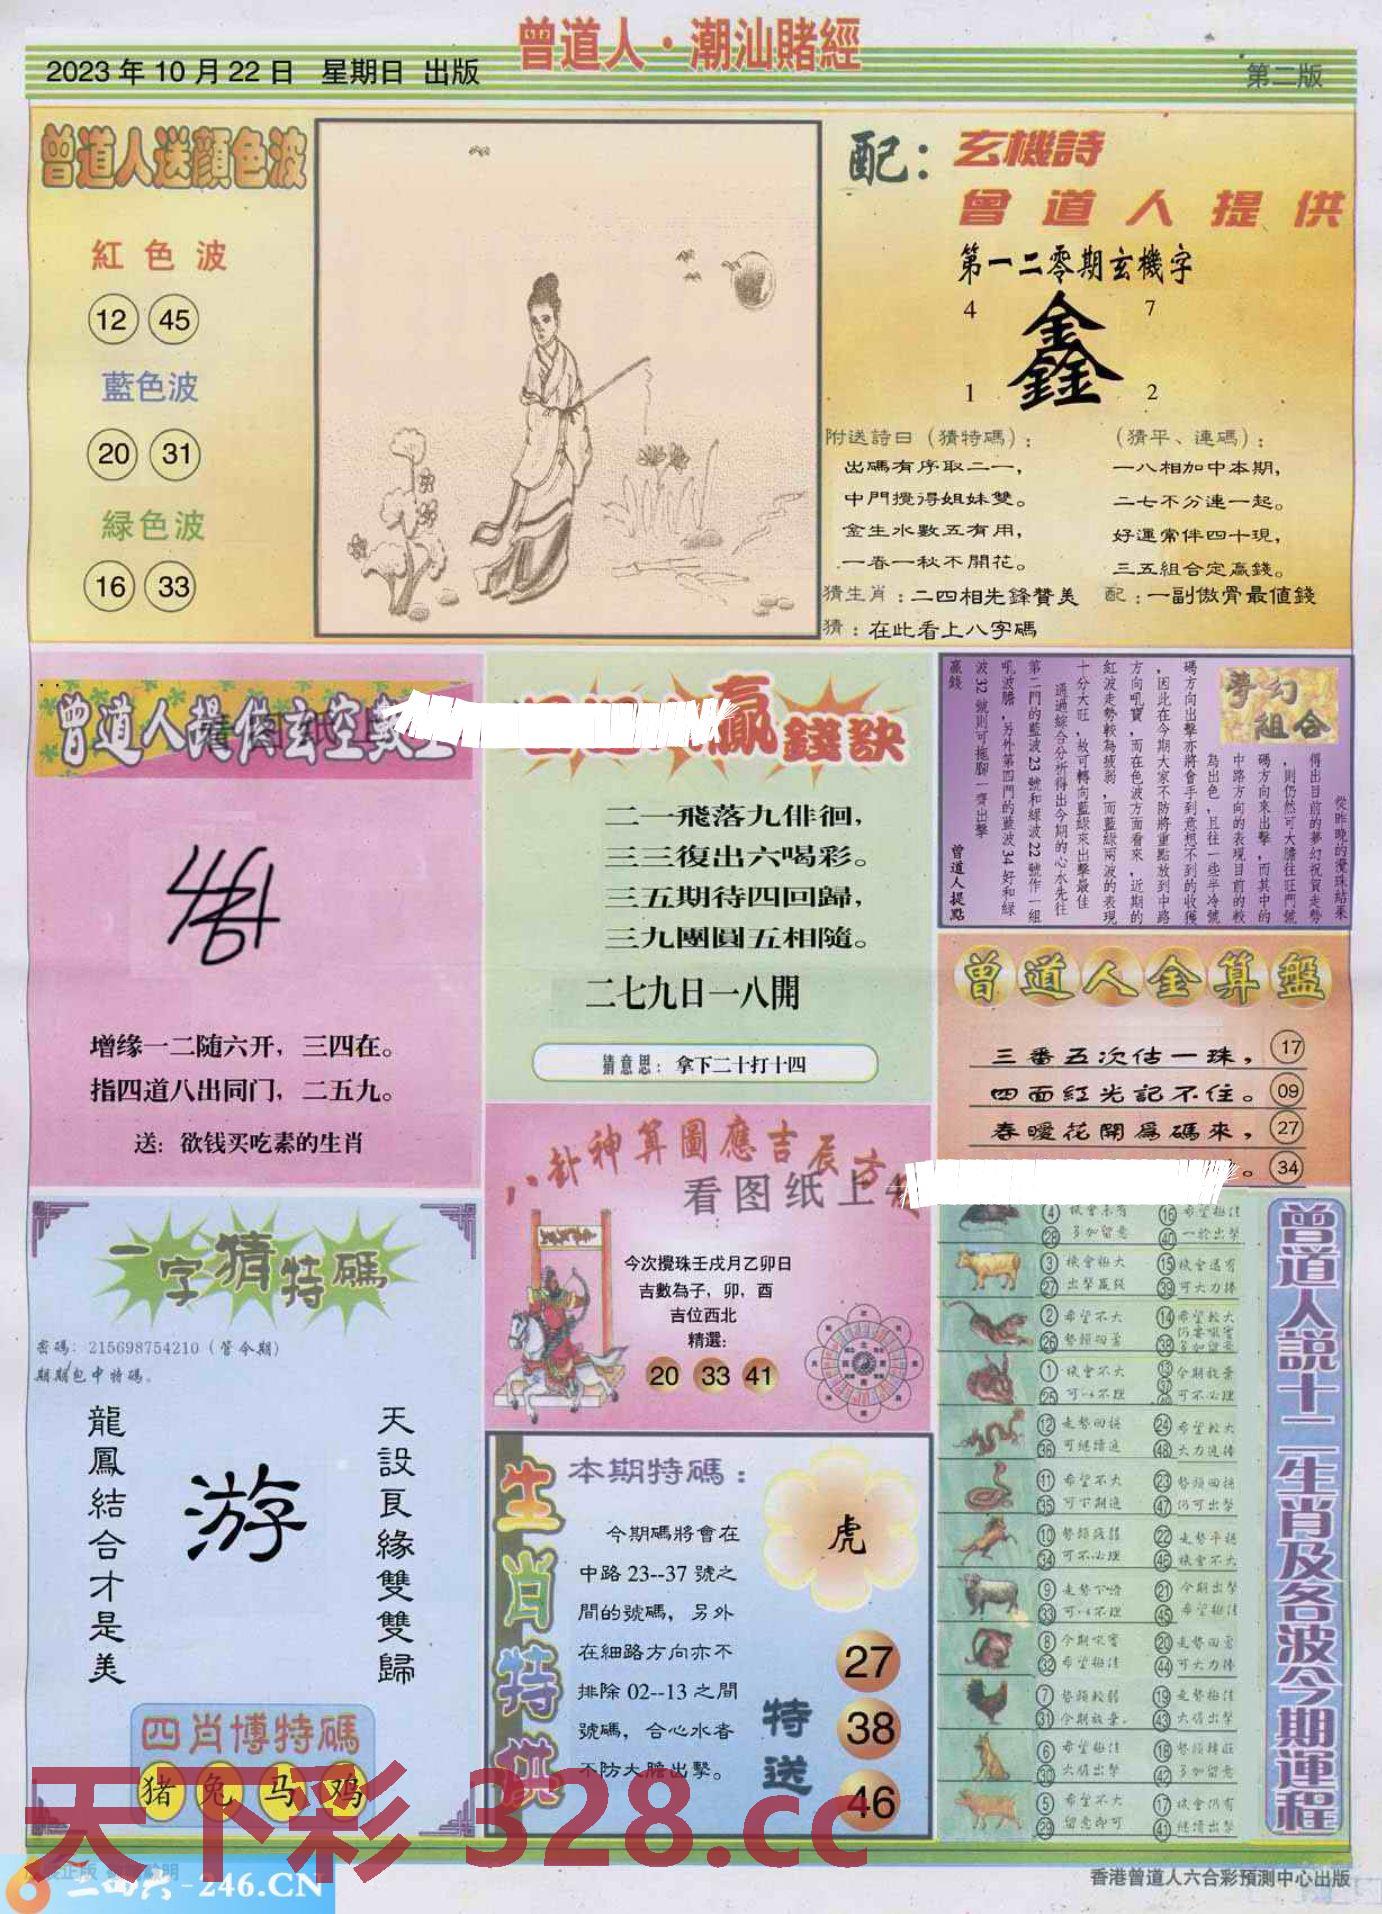 曾道人·潮汕賭經
2023年10月22日 星期日 出版
第二版
曾道人送顏色波
紅色波
12 45
藍色波
20 31
緑色波
16 33
配：玄機詩
曾道人提供
第一二零期玄機字
4 7
鑫
1 2
附送詩曰（猜特碼）：
出碼有序取二一，
中門攪得姐妹雙。
金生水數五有用，
一春一秋不開花。
（猜平、連碼）：
一八相加中本期，
二七不分連一起。
好運常伴四十現，
三五組合定贏錢。
猜生肖：二四相先鋒贊美
配：一副傲骨最值錢
猜：在此看上八字碼
曾道人提供玄空數
增缘一二随六开，三四在。
指四道八出同门，二五九。
送：欲钱买吃素的生肖
贏錢訣
二一飛落九徘徊，
三三復出六喝彩。
三五期待四回歸，
三九團圓五相隨。
二七九日一八開
猜意思：拿下二十打十四
夢幻組合
從昨晚的攪珠結果
得出目前的夢幻祝賀走勢
，則仍然可大膽往旺門號
碼方向來出擊，而其中的
中路方向的表現目前的較
為出色，且往一些半冷號
碼方向出擊亦將會手到意想不到的收獲
，因此在今期大家不防將重點放到中路
方向吼寶，而在色波方面看來，近期的
紅波走勢較為疲弱，而藍綠兩波的表現
十分大旺，故可轉向藍綠來出擊最佳
通過綜合分析得出今期的心水先往
第二門的藍波23號和綠波22號作一組
吼波膽，另外第四門的藍波34好和綠
波32號則可拖腳一齊出擊
贏錢
曾道人提點
曾道人金算盤
三番五次估一珠， 17
四面紅光記不住。 09
春曖花開爲碼來， 27
。 34
八卦神算圖應吉辰方
看图纸上
今次攪珠壬戌月乙卯日
吉數為子，卯，酉
吉位西北
精選：
20 33 41
一字猜特碼
密碼：215698754210（管今期）
期期包中特碼。
天設良緣雙雙歸
游
龍鳳結合才是美
四肖博特碼
猪 兔 马 鸡
生肖特供
本期特碼：
虎
今期碼將會在
中路23--37號之
間的號碼，另外
在細路方向亦不
排除02--13之間
號碼，合心水者
不防大膽出擊。
特送
27
38
46
曾道人說十二生肖及各波今期運程
4 機會未有 16 希望極佳
28 多加留意 40 一於出擊
3 機會極大 15 機會還有
27 出擊贏錢 39 可大力捧
2 希望不大 14 希望較大
26 勢頭凶署 38
1 機會不大 今期放棄
25 可以不理 可不必理
12 走勢回穩 24 希望較大
36 可繼續追 48 大力追捧
11 希望不大 23 勢頭回穩
35 可下期追 47 仍可出擊
10 勢頭疲弱 22 走勢平穩
34 可不必理 46 機會不大
9 走勢下滑 21 今期出擊
33 可以不理 45 希望極佳
8 今期吼實 20 走勢回暑
32 希望極佳 44 可大力捧
7 勢頭較弱 19 走勢極佳
31 今期放棄. 43 大膽出擊
6 希望極佳 18 勢頭轉旺
30 大膽出擊 42 多加留意
5 希望不大 17 機會仍有
29 留意即可 41 繼續出擊
天下彩 328.cc
二四六-246.CN
香港曾道人六合彩預測中心出版